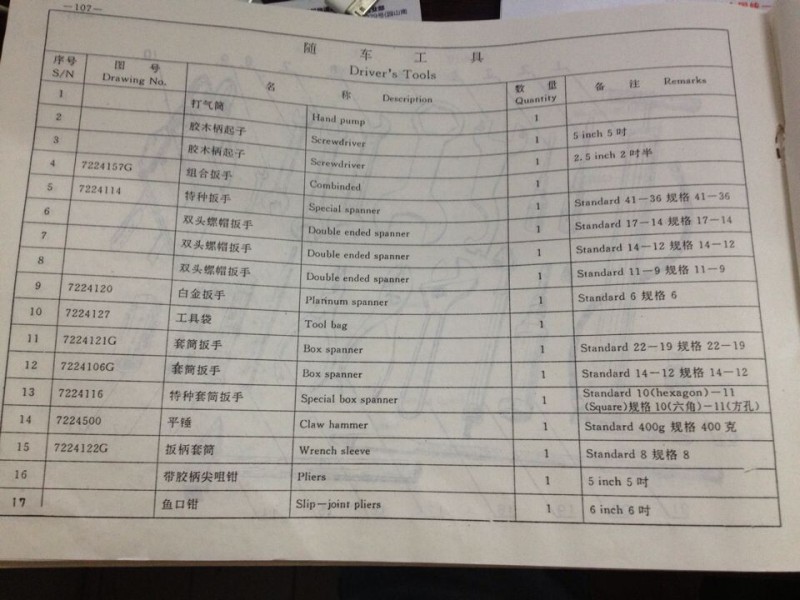 —107—
随 车 工 具
Driver's Tools
序号 图 号 名 称 Description 数 量 备 注 Remarks
S/N Drawing No. Quantity
1 打气筒 Hand pump 1
2 胶木柄起子 Screwdriver 1 5 inch 5 吋
3 胶木柄起子 Screwdriver 1 2.5 inch 2 吋半
4 7224157G 组合扳手 Combinded 1
5 7224114 特种扳手 Special spanner 1 Standard 41—36 规格 41—36
6 双头螺帽扳手 Double ended spanner 1 Standard 17—14 规格 17—14
7 双头螺帽扳手 Double ended spanner 1 Standard 14—12 规格 14—12
8 双头螺帽扳手 Double ended spanner 1 Standard 11—9 规格 11—9
9 7224120 白金扳手 Platinum spanner 1 Standard 6 规格 6
10 7224127 工具袋 Tool bag 1
11 7224121G 套筒扳手 Box spanner 1 Standard 22—19 规格 22—19
12 7224106G 套筒扳手 Box spanner 1 Standard 14—12 规格 14—12
13 7224116 特种套筒扳手 Special box spanner 1 Standard 10(hexagon)—11
(Square)规格 10(六角)—11(方孔)
14 7224500 平锤 Claw hammer 1 Standard 400g 规格 400 克
15 7224122G 扳柄套筒 Wrench sleeve 1 Standard 8 规格 8
16 带胶柄尖咀钳 Pliers 1 5 inch 5 吋
17 鱼口钳 Slip—joint pliers 1 6 inch 6 吋